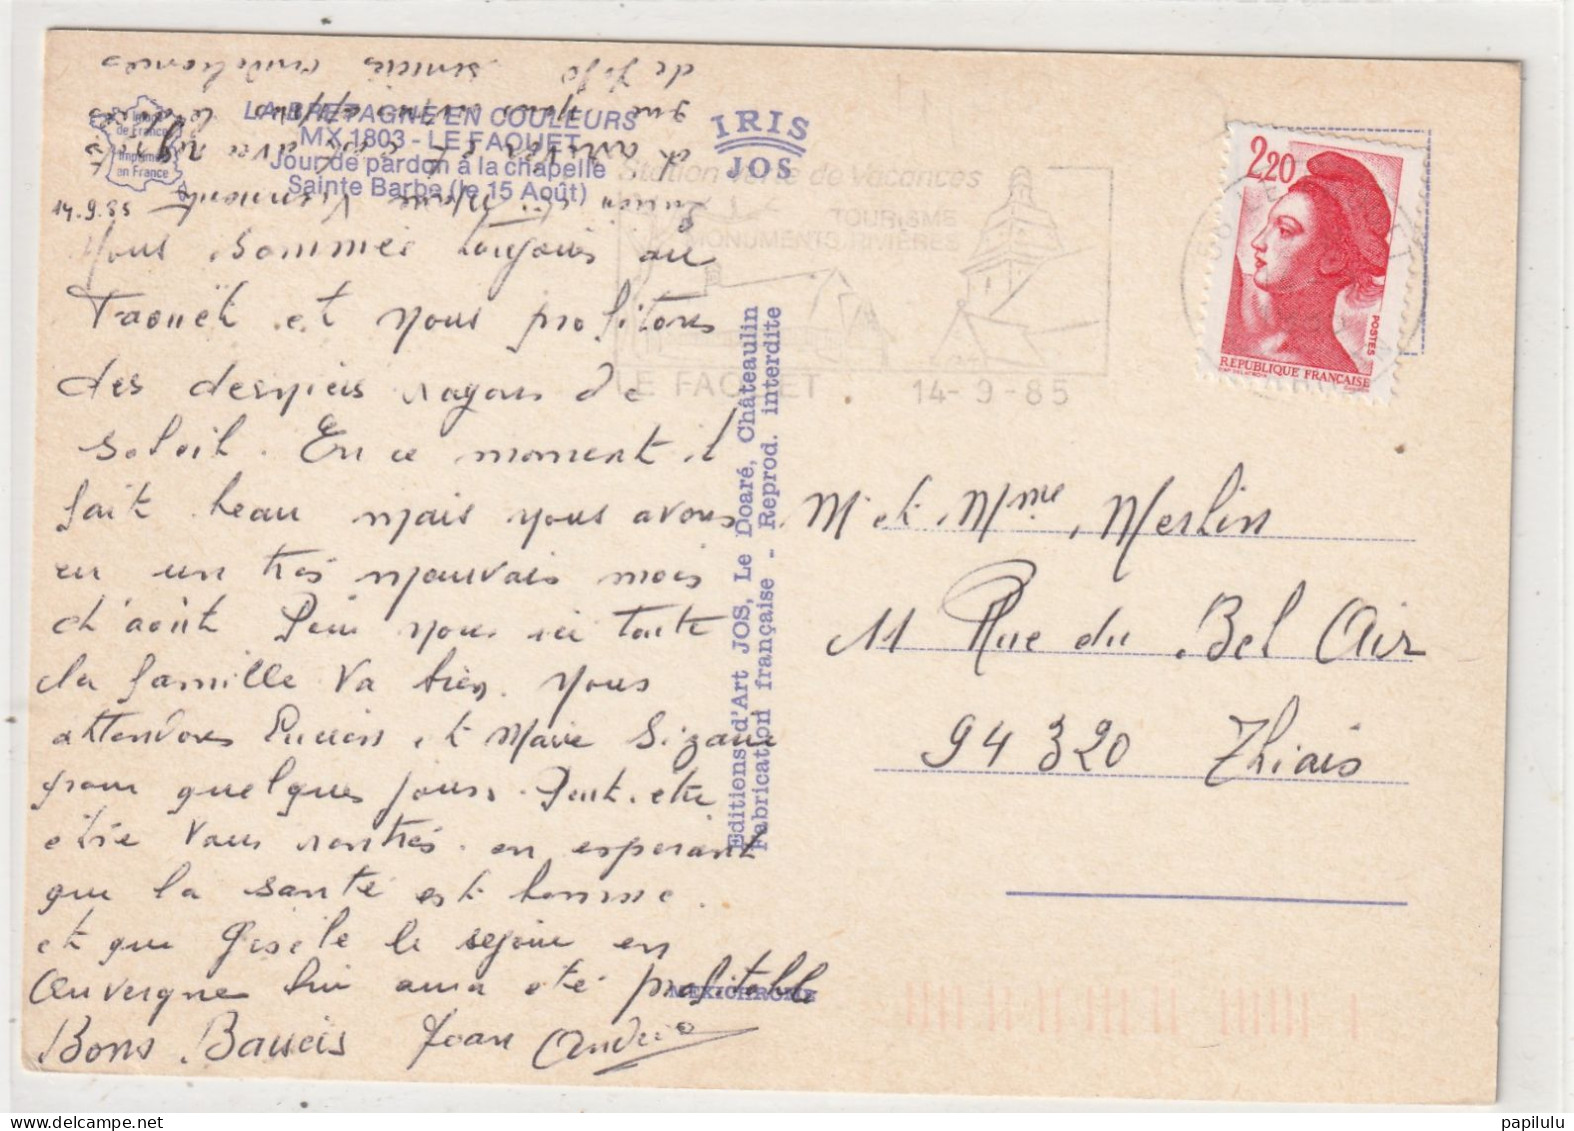 LA BRETAGNE EN COULEURS
MX 1803 - LE FAOUET
Jour de pardon à la chapelle
Sainte Barbe (le 15 Août)
Imprimé en France
IRIS
JOS
Station verte de vacances
TOURISME
MONUMENTS RIVIÈRES
LE FAOUET
14-9-85
2,20
POSTES
REPUBLIQUE FRANÇAISE
14.9.85
Nous sommes toujours au
Faouët et nous profitons
des derniers rayons de
soleil. En ce moment il
fait beau mais nous avons
eu un très mauvais mois
d'août Pour nous ici toute
la famille va bien. Nous
attendons Lucien et Marie Suzanne
pour quelques jours. Peut-etre
être vous rentrés. en esperant
que la santé est bonne.
et que Gisèle le sejour en
Auvergne lui aura été profitable
Bons Baisers Jean Andrée
de Jojo sincères condoleances
Editions d'Art JOS, Le Doaré, Châteaulin
Fabrication française - Reprod. interdite
MEXICHROME
M et Mme Merlin
11 Rue du Bel Air
94320 Thiais
papilulu